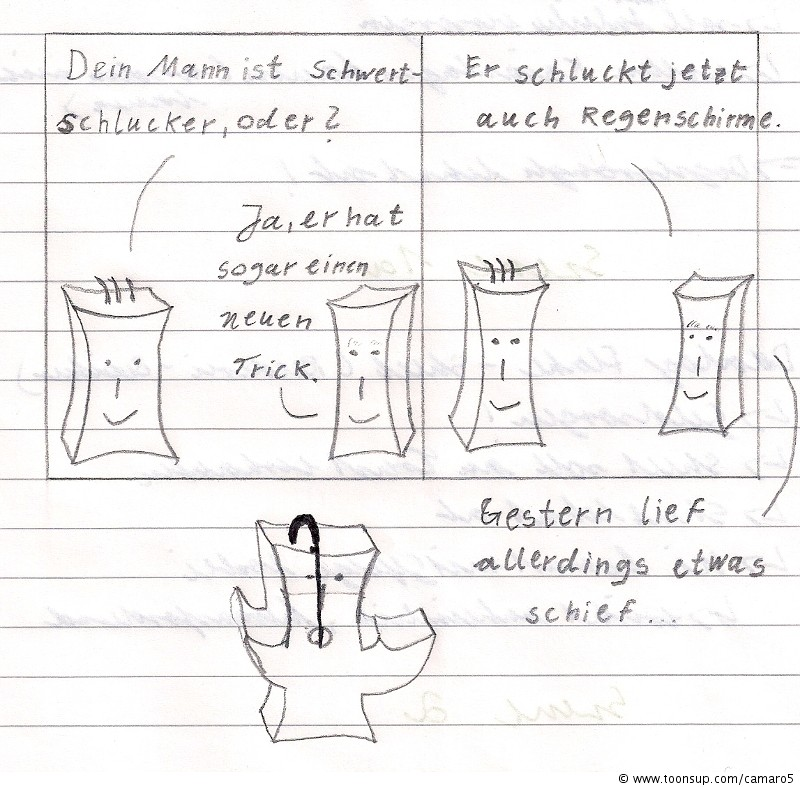 Dein Mann ist Schwert-
schlucker, oder?
Ja, er hat
sogar einen
neuen
Trick.
Er schluckt jetzt
auch Regenschirme.
Gestern lief
allerdings etwas
schief...
© www.toonsup.com/camaro5